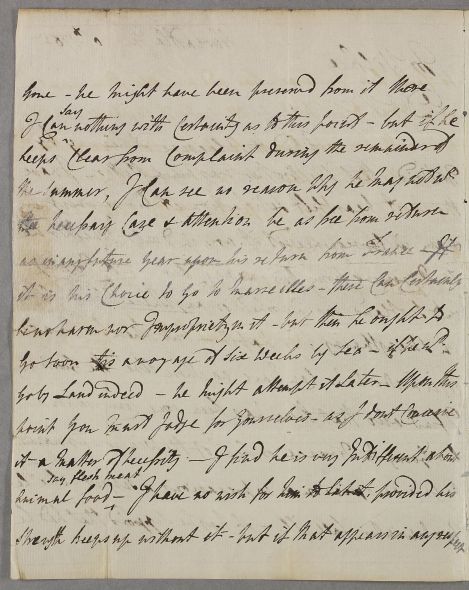 gone - he might have been preserved from it there
say
I Can nothing with Certainty as to this point - but if he
keeps Clear from Complaint during the remainder of
the Summer, I Can see no reason why he may not with
the necessary Care & attention be as free from return
as in any future year upon his return from France - If
it is his Choice to go to Marseilles - there Can Certainly
be no harm nor Impropriety in it - but then he ought to
go soon tis a voyage of six weeks by Sea - if he wd.
go by Land indeed - he might attempt it Later - Upon this
point you must Judge for yourselves - as I dont Conceive
it a Matter of necessity - I find he is very Indifferent about
say flesh meat
animal food - I have no wish for him to take it, provided his
strength keeps up without it - but if that appears in any respect